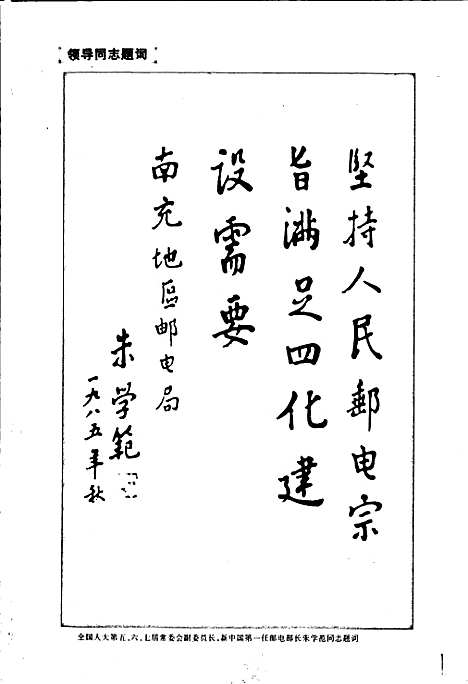 领导同志题词
坚持人民郵电宗
旨满足四化建
设需要
南充地區邮电局
朱学範
一九八五年秋
全国人大第五、六、七届常委会副委员长,新中国第一任邮电部长朱学范同志题词